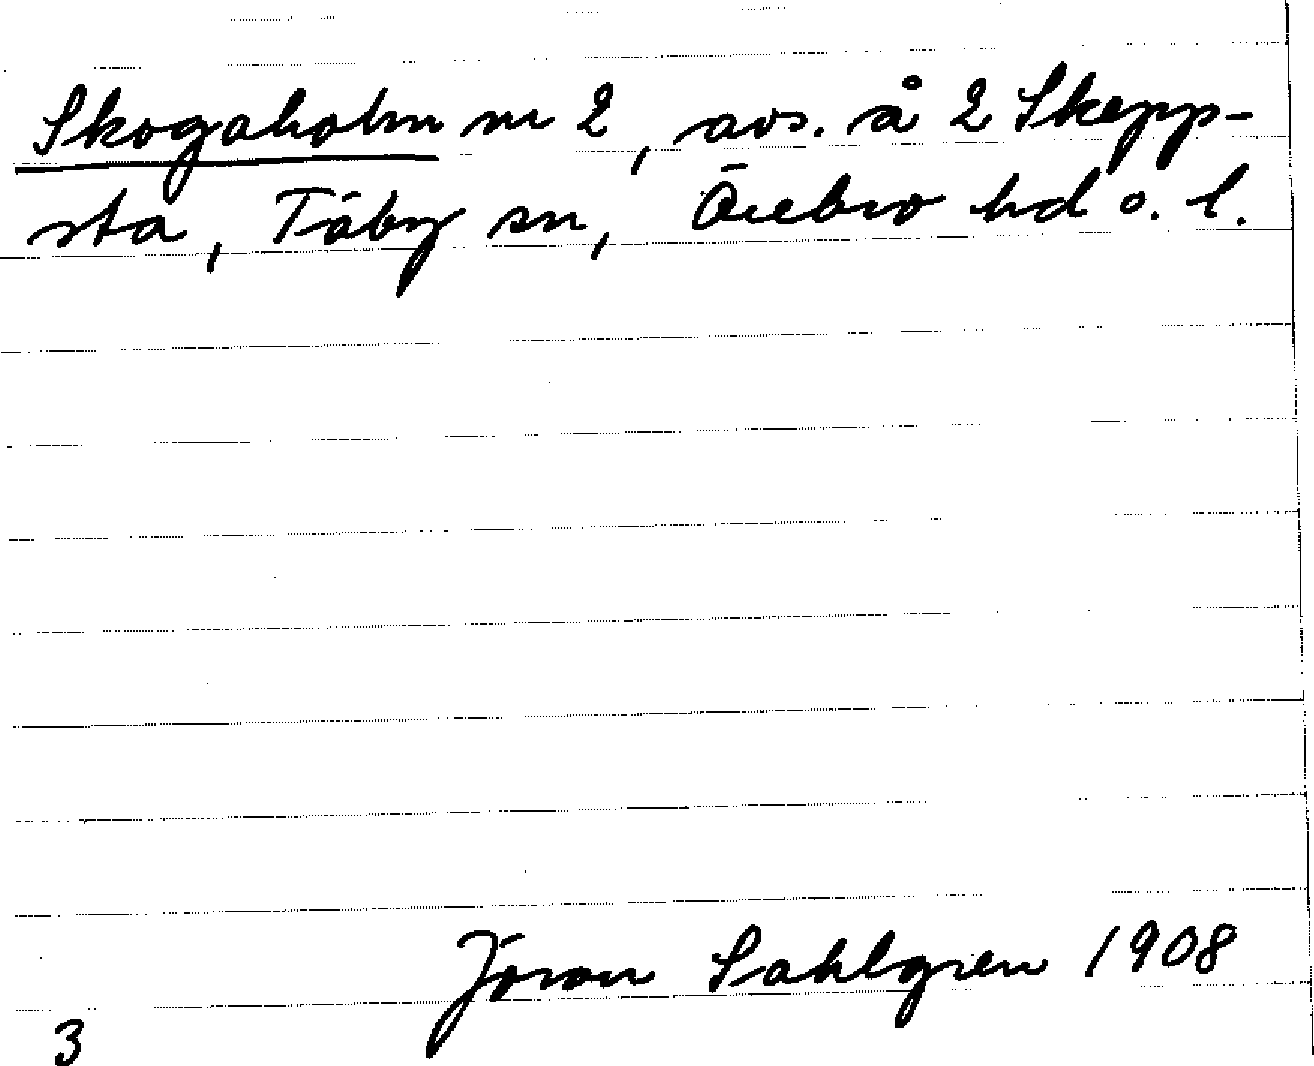 Skogaholm nr 2, avs. å 2 Skepp-
sta, Täby sn, Örebro hd o. l.
Jöran Sahlgren 1908
3